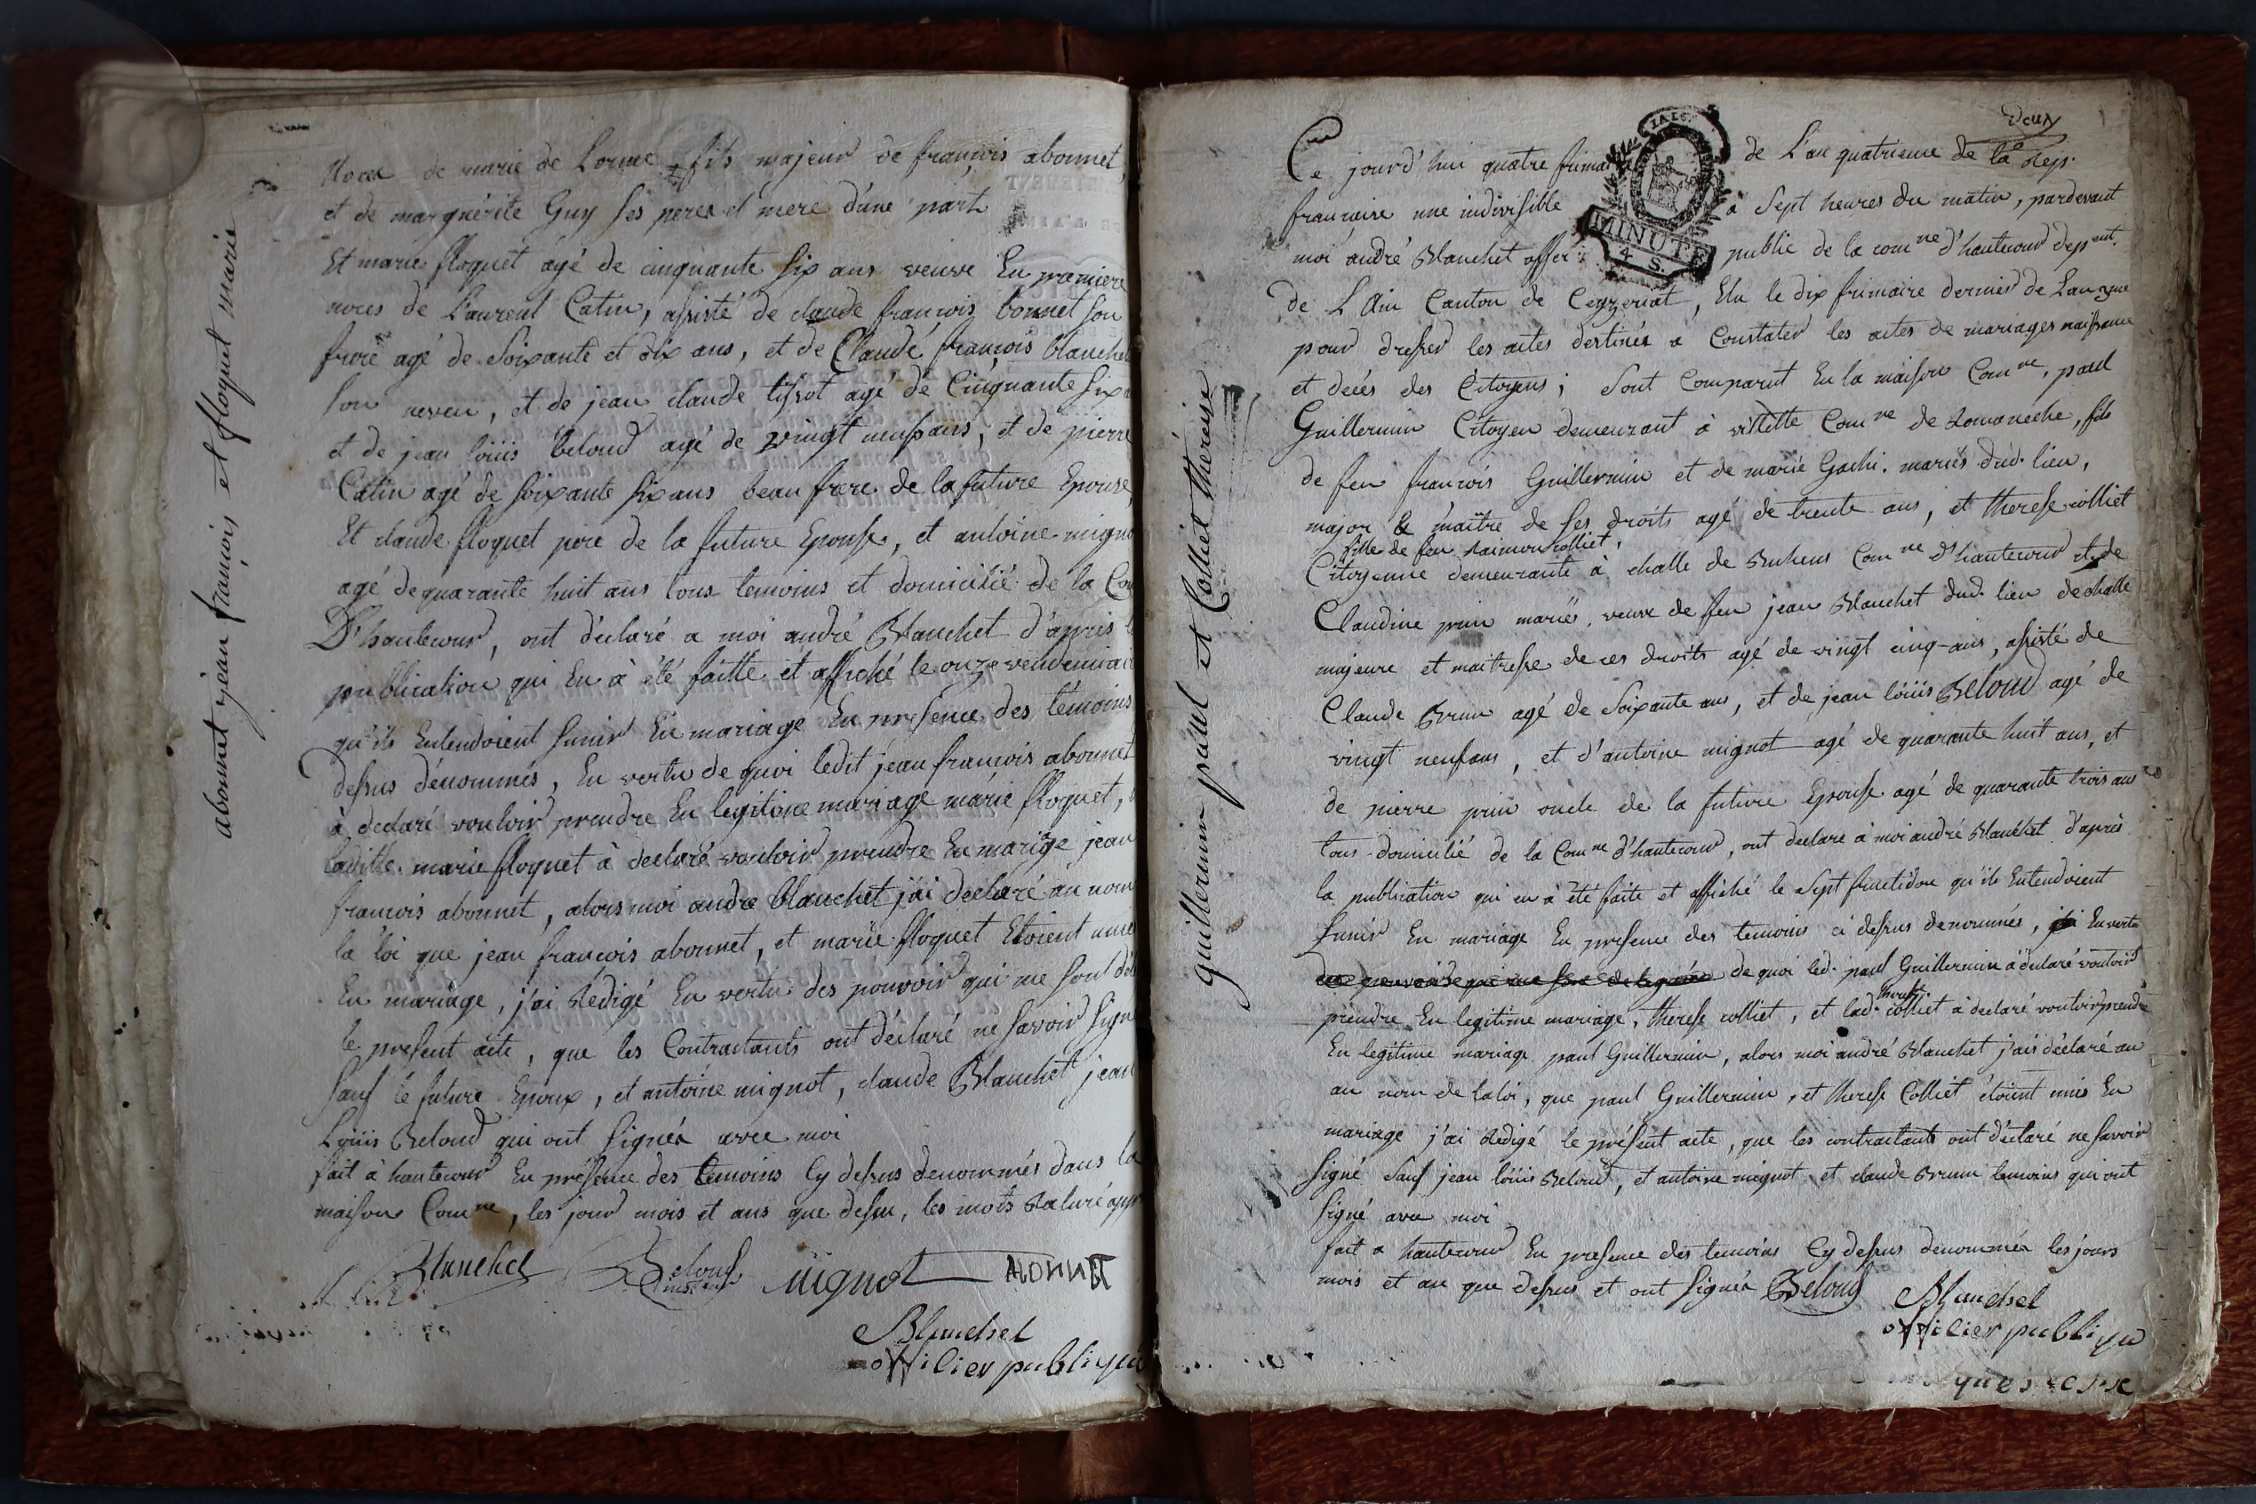 abonnet jean françois et floquet marie
de marie de Lorme fils majeur de françois abonnet,
et de marguérite Guy ses peres et mere d'une part
Et marie floquet agé de cinquante six ans veuve En premiere
noces de Laurent Catin, assisté de claude françois bonnet son
frere agé de soixante et dix ans, et de Claude françois blanchet
son neveu, et de jean claude tissot agé de Cinquante six
et de jean loüis beloud agé de vingt neuf ans, et de pierre
Catin agé de soixante six ans beau frere de la future Epouse,
Et claude floquet pere de la future Epouse, et antoine mignot
agé de quarante huit ans tous temoins et domicilié de la Com
D'hautecour, ont déclaré a moi andré Blanchet d'apres la
publication qui En à été faitte et affiché le onze vendemiaire
qu'ils Entendoient sunir En mariage En presence des témoins
dessus dénommés, En vertu de quoi ledit jean françois abonnet
à declaré vouloir prendre En legitime mariage marie floquet,
laditte marie floquet à declaré vouloir prendre En mariage jean
françois abonnet, alors moi andre blanchet j'ai declaré au nom
la loi que jean françois abonnet, et marie floquet Etoient unies
En mariage, j'ai rédigé En vertu des pouvoir qui me sont dél
le present acte, que les Contractants ont déclaré ne savoir signé
sauf le future Epoux, et antoine mignot, claude Blanchet jean
Loüis Beloud qui ont signés avec moi
fait à hautecour En présence des temoins Cy dessus denommés dans la
maison Comne, les jour mois et ans que dessu, les mots Raturé app
Blanchet Beloud mignot ABONNET
Blanchet
officier publique
guillermin paul et Colliet thérèise
deux
Ce jourd'hui quatre frimaire de L'an quatrieme de la rep.
françoise une indivisible à sept heures du matin, pardevant
MINUTE
4 S.
moi andré Blanchet officier public de la comne d'hautecour depent.
de L'Ain Canton de Ceyzeriat, Elu le dix frimaire dernier de L'an 3me
pour dresser les actes destinés a Constater les actes de mariages naissance
et décés des Citoyens; sont comparut En la maison Comne, paul
Guillermin Citoyen demeurant à villette Comne de Romaneche, fils
de feu françois Guillermin et de marie Gachi. mariés dud. lieu,
major & maître de ses droits agé de trente ans, et therese colliet
fille de feu Raimon colliet,
Citoyenne demeurante à challe de Buhens Comne d'hautecour et de
Claudine prin mariés, veuve de feu jean Blanchet dud. lieu de challe
majeure et maitresse de ces droits agé de vingt cinq-ans, assisté de
Claude Brun agé de soixante ans, et de jean loüis Beloud agé de
vingt neuf ans, et d'antoine mignot agé de quarante huit ans, et
de pierre prin oncle de la future Epouse agé de quarante trois ans
tous domicilié de la Comne d'hautecour, ont declaré à moi andré Blanchet d'après
la publication qui en à été faite et affiché le sept fructidor qu'ils Entendoient
sunir En mariage En presence des temoins ci dessus denommés, j'ai En vertu
des pouvoirs qui me sont delegués de quoi led. paul Guillermin à déclaré vouloir
prendre En legitime mariage, therese colliet, et lad. therese colliet à declaré vouloir prendre
En legitime mariage paul Guillermin, alors moi andré Blanchet j'ais déclaré au
au nom de la loi, que paul Guillermin, et therese Colliet étoient unis En
mariage j'ai rédigé le présent acte, que les contractants ont déclaré ne savoir
signé sauf jean loüis Beloud, et antoine mignot et claude Brun temoins qui ont
signé avec moi
fait a hautecour En presence des temoins Cy dessus denommés les jours
mois et an que dessus et ont signés Beloud
Blanchet
officier publique